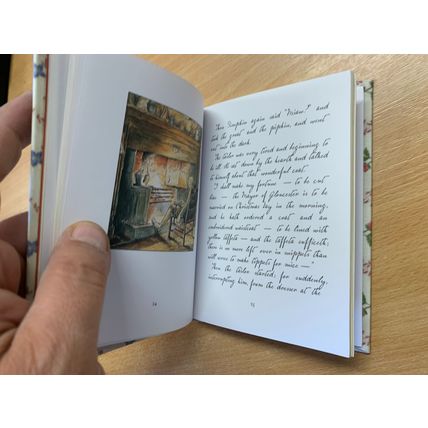 Then Simpkin again said "Miaw!" and
took the groat and the pipkin, and went
out into the dark.
The tailor was very tired and beginning to
be ill. He sat down by the hearth and talked
to himself about that wonderful coat.
"I shall make my fortune — to be cut
bias — the Mayor of Gloucester is to be
married on Christmas Day in the morning,
and he hath ordered a coat and an
embroidered waistcoat — to be lined with
yellow taffeta — and the taffeta sufficeth;
there is no more left over in snippets than
will serve to make tippets for mice — "
Then the tailor started; for suddenly,
interrupting him, from the dresser at the
14
15